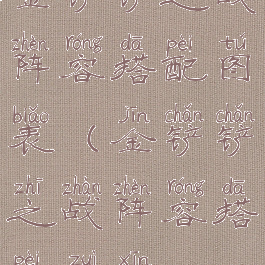 zhèn róng dā pèi tú
阵容搭配图
biǎo jīn chǎn chǎn
表(金铲铲
zhī zhàn zhèn róng dā
之战阵容搭
pèi zuì xīn